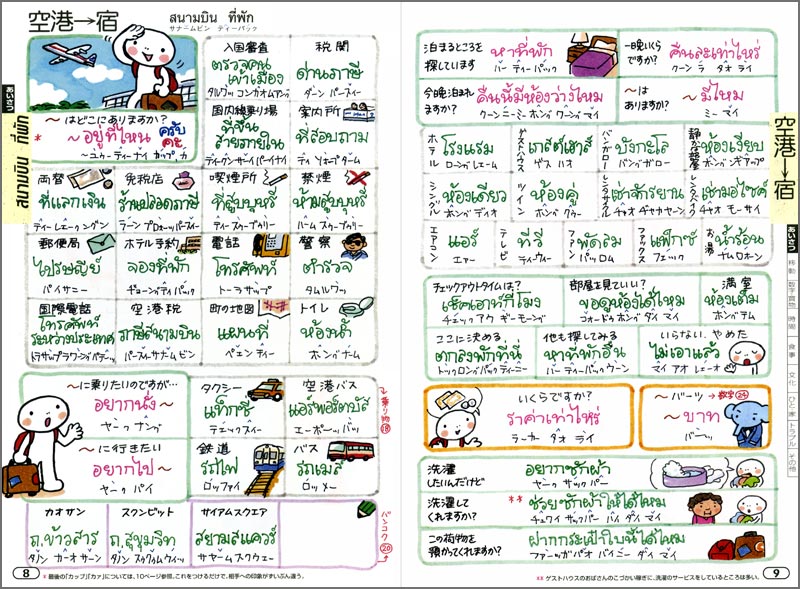 空港→宿
สนามบิน ที่พัก
サナームビン ティーパック
あいさつ
สนามบิน ที่พัก
〜はどこにありますか?
* 〜อยู่ที่ไหน ครับ คะ
〜ユゥー ティー ナイ カップ カ
入国審査
ตรวจคนเข้าเมือง
税関
ด่านภาษี
ダーン パースィー
国内線乗り場
ที่ขึ้นสายภายใน
案内所
ที่สอบถาม
両替
ที่แลกเงิน
ティーレェークングン
免税店
ร้านปลอดภาษี
喫煙所
ที่สูบบุหรี่
ティースーブブリー
禁煙
ห้ามสูบบุหรี่
ハームスーブブリー
郵便局
ไปรษณีย์
パイサニー
ホテル予約
จองที่พัก
ヂョーンティパック
電話
โทรศัพท์
トーラサップ
警察
ตำรวจ
タムルワッ
国際電話
โทรศัพท์ระหว่างประเทศ
空港税
ภาษีสนามบิน
町の地図
แผนที่
ペェンティー
トイレ
ห้องน้ำ
ホンナーム
〜に乗りたいのですが…
อยากนั่ง〜
ヤーク ナング
〜に行きたい
อยากไป〜
ヤーク パイ
タクシー
แท็กซี่
テェックスィー
空港バス
แอร์พอร์ตบัส
エーポーッバッ
鉄道
รถไฟ
ロッファイ
バス
รถเมล์
ロッメー
乗り物⑱
カオサン
ถ.ข้าวสาร
タノン カーオサーン
スクンビット
ถ.สุขุมวิท
タノン スクゥムウィッ
サイアムスクエア
สยามสแควร์
サヤームスクウェー
バンコク⑳
8
* 最後の「カップ」「カァ」については、10ページ参照。これをつけるだけで、相手への印象がずいぶん違う。
泊まるところを探しています
หาที่พัก
ハー ティー パック
一晩いくらですか?
คืนละเท่าไหร่
クーンラ タオライ
今晩泊まれますか?
คืนนี้มีห้องว่างไหม
クーンニーミー ホングワーングマイ
〜はありますか?
〜มีไหม
ミーマイ
ホテル
โรงแรม
ローングレェーム
ゲストハウス
เกสต์เฮาส์
ゲスハオ
バンガロー
บังกะโล
バンガロー
静かな部屋
ห้องเงียบ
ホングンギアップ
シングル
ห้องเดี่ยว
ホングディオ
ツイン
ห้องคู่
ホングクゥー
レンタサイクル
เช่าจักรยาน
チャオヂャカヤーン
レンタバイク
เช่ามอไซค์
チャオモーサイ
エアコン
แอร์
エー
テレビ
ทีวี
ティーウィー
ファン
พัดลม
パッロム
ファックス
แฟ็กซ์
フェック
お湯
น้ำร้อน
ナムローン
チェックアウトタイムは?
เช็คเอาท์กี่โมง
チェックアウ ギーモーング
部屋を見ていい?
ขอดูห้องได้ไหม
コードゥホングダイマイ
満室
ห้องเต็ม
ホングテム
ここに決める
ตกลงพักที่นี่
トックロングパックティーニー
他も探してみる
หาที่พักอื่น
ハーティーパックウーン
いらない、やめた
ไม่เอาแล้ว
マイアオレェーオ
いくらですか?
ราคาเท่าไหร่
ラーカー タオライ
〜バーツ →数字㉔
〜บาท
バーッ
洗濯したいんだけど
อยากซักผ้า
ヤークサックパー
洗濯してくれますか?
** ช่วยซักผ้าให้ได้ไหม
チュワイサックパーハイダイマイ
この荷物を預かってくれますか?
ฝากกระเป๋าใบนี้ได้ไหม
空港→宿
あいさつ
移動
数字 買物
時間
食事
文化
ひと・家
トラブル
その他
** ゲストハウスのおばさんのこづかい稼ぎに、洗濯のサービスをしているところは多い。
9